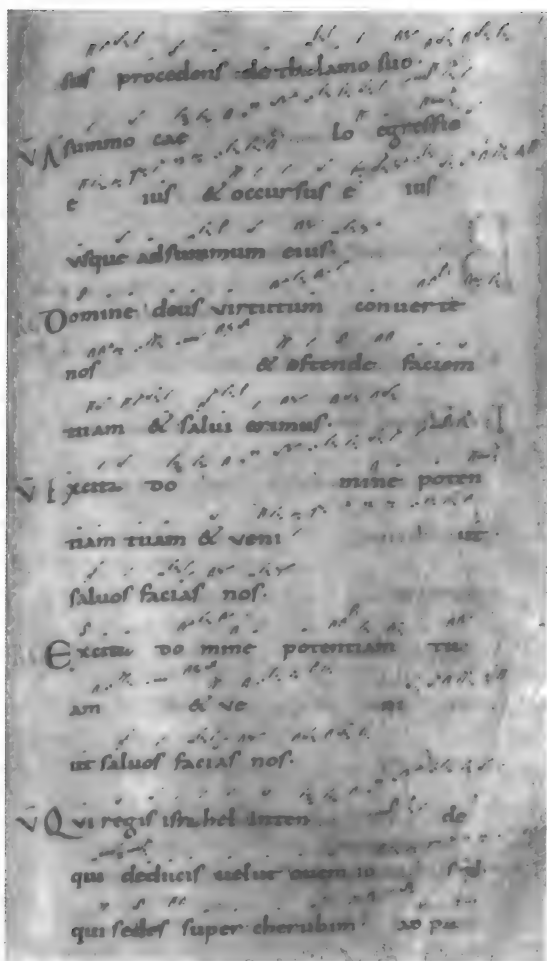 sus procedens de thalamo suo.
V A summo cae lo egressio
e ius & occursus e ius
usque ad summum eius.
Domine deus virtutum converte
nos & ostende faciem
tuam & salvi erimus.
V Excita do mine poten
tiam tuam & veni ut
salvos facias nos.
Excita do mine potentiam tu
am & ve ni
ut salvos facias nos.
V Qui regis israhel inten de
qui deducis uelut ovem io
qui sedes super cherubim